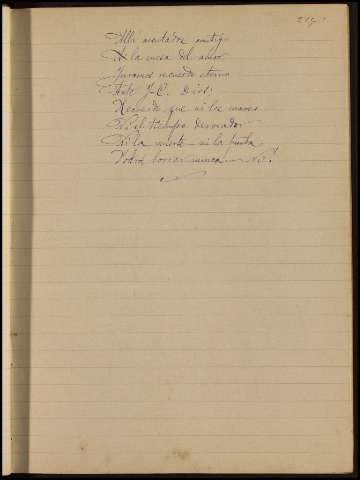 Allí sentados contigo
A la mesa del amor
Juramos recuerdo eterno
Ante J-C. Dios:
Recuerdo que ni los mares
Ni el tiempo devorador
Ni la muerte ni la tumba
Podrá borrar nunca No!